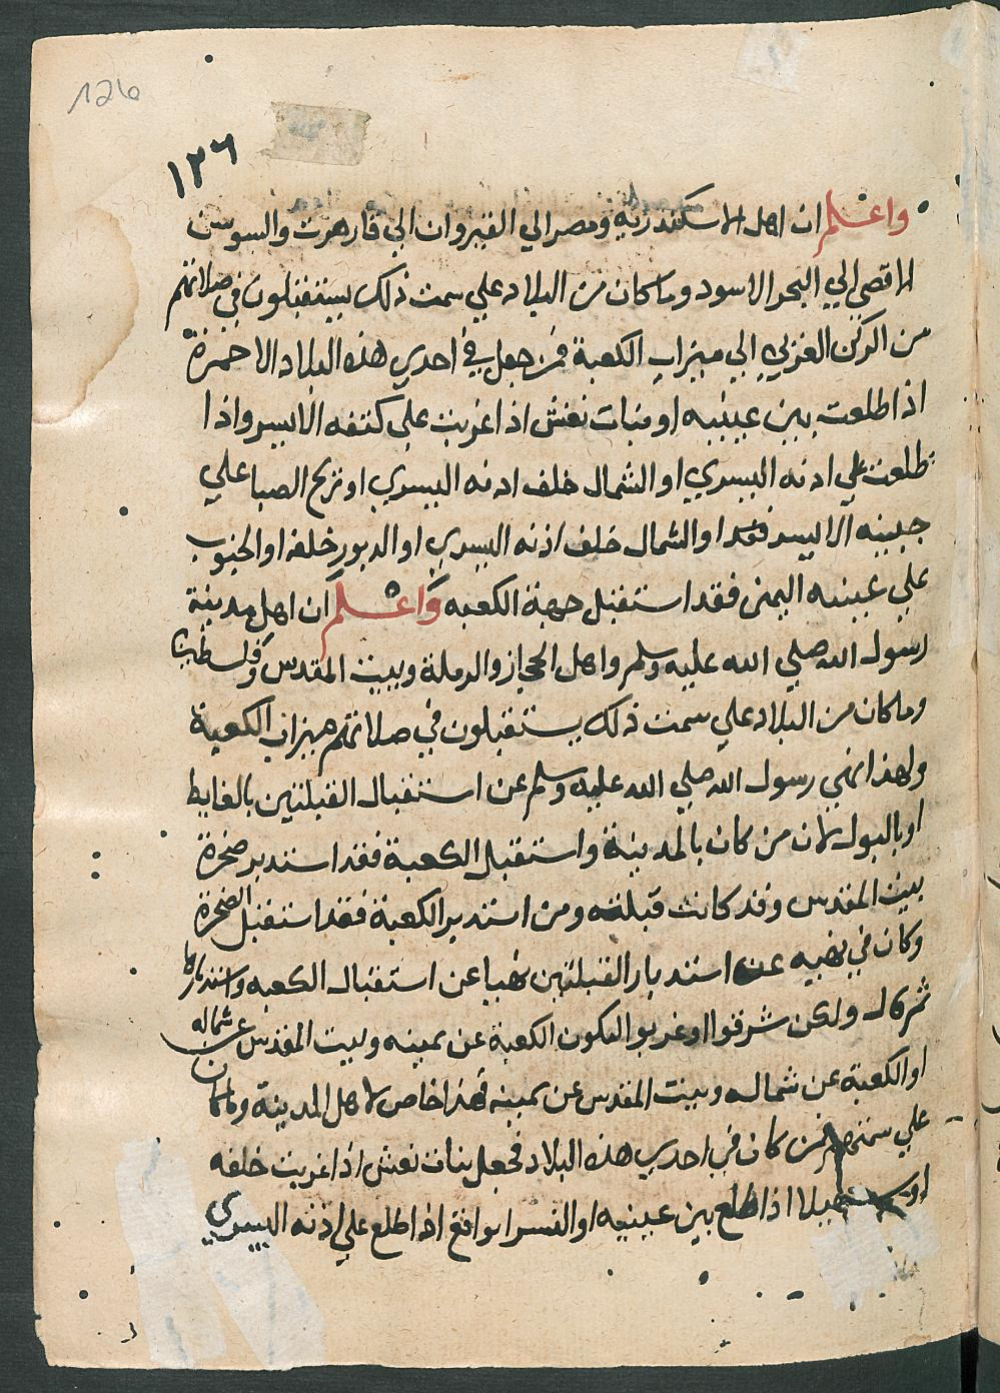 126
١٢٦
واعلم ان اهل الاسكندريه ومصر الي القيروان الي قارهرت والسوس
الاقصي الي البحر الاسود وما كان من البلاد علي سمت ذلك يستقبلون في صلاتهم
من الركن الغزلي الي ميزاب الكعبة فمن جعل في احدي هذه البلاد الا
اذا طلعت بين عينيه او بنات نعش اذا غربت علي كتفه الايسر واذا
طلعت علي ادنه اليسري او الشمال خلف ادنه اليسري او تريح الصبا علي
جبينه الايسر فقد او الشمال خلف اذنه اليسري او الدبور خلفه او الجنوب
علي عينه اليمني فقد استقبل جهة الكعبه واعلم ان اهل مدينة
رسول الله صلي الله عليه وسلم واهل الحجاز والرملة وبيت المقدس وفلسطين
وما كان من البلاد علي سمت ذلك يستقبلون في صلاتهم ميزاب الكعبة
ولهذا نهي رسول الله صلي الله عليه وسلم عن استقبال القبلتين بالغايط
او بالبول لان من كان بالمدينة واستقبل الكعبة فقد استدبر صخرة
بيت المقدس وقد كانت قبلته ومن استدبر الكعبة فقد استقبل الصخرة
وكان في نهيه عن استدبار القبلتين نهيا عن استقبال الكعبه واستدبارها
ثم قال ولكن شرقوا او غربوا لتكون الكعبة عن يمينه وبيت المقدس عن شماله
او الكعبة عن شماله وبيت المقدس عن يمينه فهذا خاص لاهل المدينة وما كان
علي سمتهم فمن كان في احدي هذه البلاد فجعل بنات نعش اذا غربت خلفه
او سهيلا اذا طلع بين عينيه او النسر الواقع اذا طلع علي اذنه اليسري